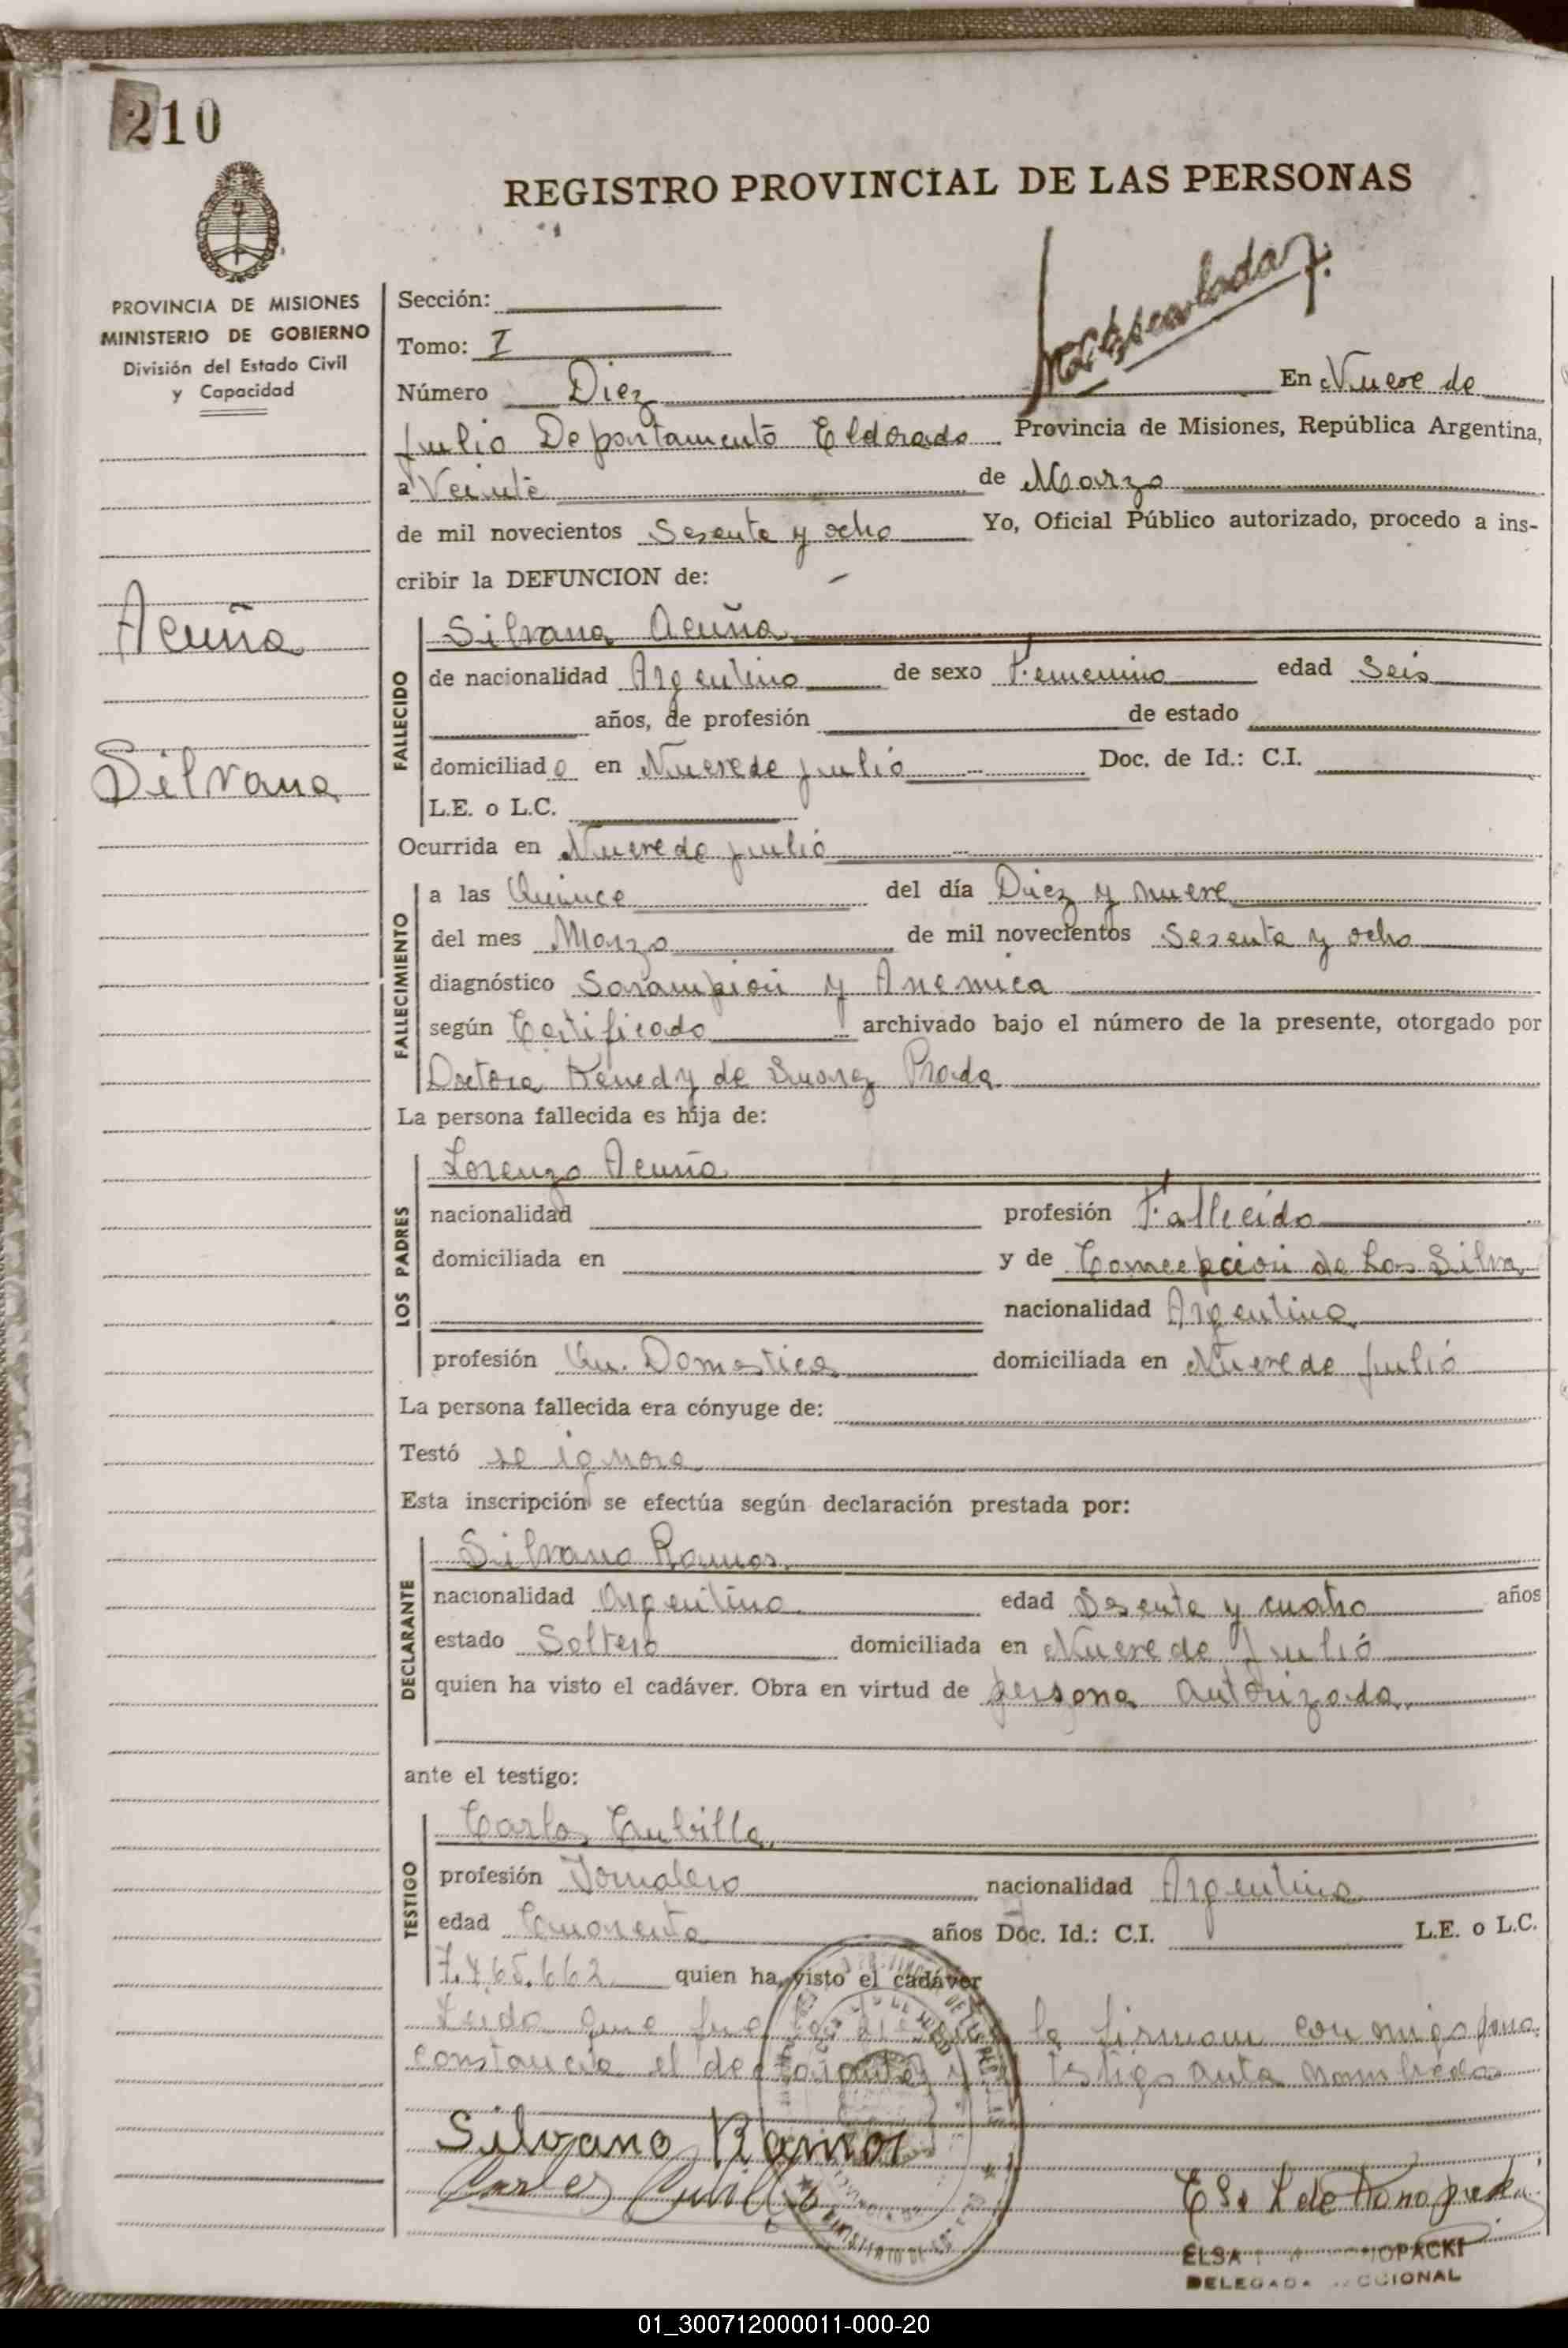 210
REGISTRO PROVINCIAL DE LAS PERSONAS
PROVINCIA DE MISIONES
MINISTERIO DE GOBIERNO
División del Estado Civil
y Capacidad
Acuña
Silvana
Sección:
Tomo: I
Número Diez En Nueve de
Julio Departamento Eldorado Provincia de Misiones, República Argentina,
a Veinte de Marzo
de mil novecientos Sesenta y ocho Yo, Oficial Público autorizado, procedo a ins-
cribir la DEFUNCION de:
FALLECIDO
Silvana Acuña
de nacionalidad Argentino de sexo Femenino edad Seis
años, de profesión de estado
domiciliado en Nueve de Julio Doc. de Id.: C.I.
L.E. o L.C.
Ocurrida en Nueve de Julio
FALLECIMIENTO
a las Quince del día Diez y nueve
del mes Marzo de mil novecientos Sesenta y ocho
diagnóstico Sarampión y Anemica
según Certificado archivado bajo el número de la presente, otorgado por
Doctora Kenedy de Suarez Prada
La persona fallecida es hija de:
LOS PADRES
Lorenzo Acuña
nacionalidad profesión Fallecido
domiciliada en y de Concepción de Los Silva
nacionalidad Argentina
profesión Domestica domiciliada en Nueve de Julio
La persona fallecida era cónyuge de:
Testó se ignora
Esta inscripción se efectúa según declaración prestada por:
DECLARANTE
Silvano Ramos
nacionalidad Argentino edad Sesenta y cuatro años
estado Soltero domiciliada en Nueve de Julio
quien ha visto el cadáver. Obra en virtud de persona autorizada
ante el testigo:
TESTIGO
Carlos Cubilla
profesión Jornalero nacionalidad Argentino
edad Cuarenta años Doc. Id.: C.I. L.E. o L.C.
7.465.662 quien ha visto el cadáver
Leida que fue la firman con migo para
constancia el declarante y testigo nombrados
Silvano Ramos
Carlos Cubilla
ELSA
DELEGADA SECCIONAL
01_300712000011-000-20